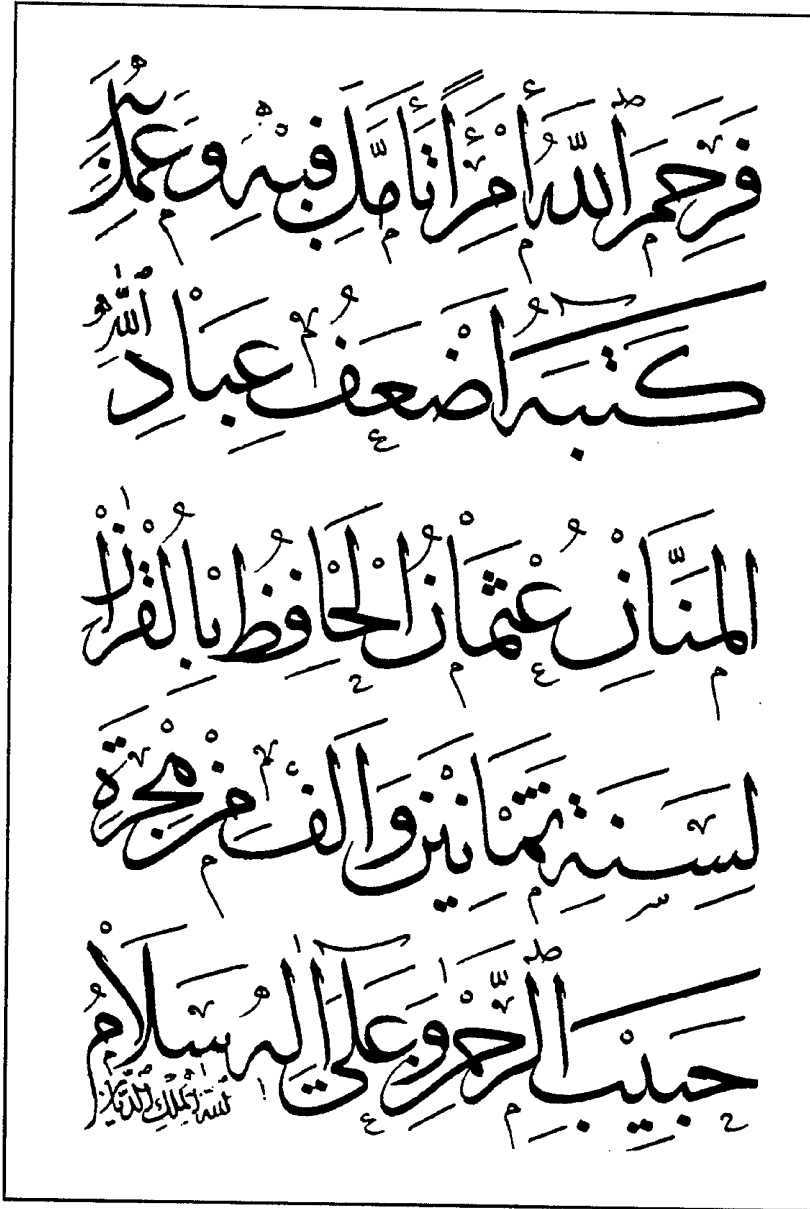 فَرَحِمَ اللّٰهُ أَمْرَأً تَأَمَّلَ فِيهِ وَعَمِلَ بِهِ
كَتَبَهُ اَضْعَفُ عِبَادِ اللّٰهِ
الْمَنَّانِ عُثْمَانُ الْحَافِظُ بِالْقُرْاٰنِ
لِسَنَةِ ثَمَانِينَ وَاَلْفٍ مِنْ هِجْرَةِ
حَبِيبِ الرَّحْمٰنِ وَعَلٰى آلِهِ سَلَامُ
اللّٰهِ الْمَلِكِ الدَّيَّانِ